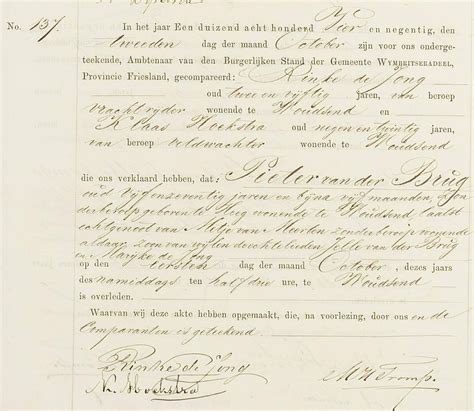 No. 137.
In het jaar Een duizend acht honderd Vier en negentig, den
tweeden dag der maand October zijn voor ons onderge-
teekende, Ambtenaar van den Burgerlijken Stand der Gemeente WYMBRITSERADEEL,
Provincie Friesland, gecompareerd: Rinke de Jong
oud twee en vijftig jaren, van beroep
vrachtrijder wonende te Woudsend en
Klaas Hoekstra oud negen en twintig jaren,
van beroep veldwachter wonende te Woudsend
die ons verklaard hebben, dat: Pieter van der Brug
oud vijfenzeventig jaren en bijna vijf maanden, zon
der beroep geboren te Heeg wonende te Woudsend, laatst
echtgenoot van Metje van Meerten zonder beroep wonende
aldaar, zoon van wijlen de echtelieden Jelle van der Brug
en Marijke de Jong
op den eersten dag der maand October, dezes jaars
des namiddags ten half drie ure, te Woudsend
is overleden.
Waarvan wij deze akte hebben opgemaakt, die, na voorlezing, door ons en de
Comparanten is geteekend.
Rinke de Jong
K. Hoekstra
Tromp.